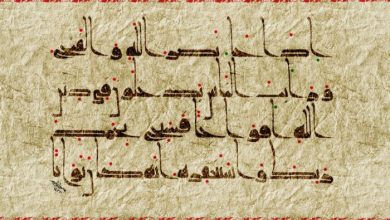 اذا جا نصر الله و الفتح
و رايت الناس يدخلون في دين
الله افواجا فسبح بحمد
ربك و استغفره انه كان توابا